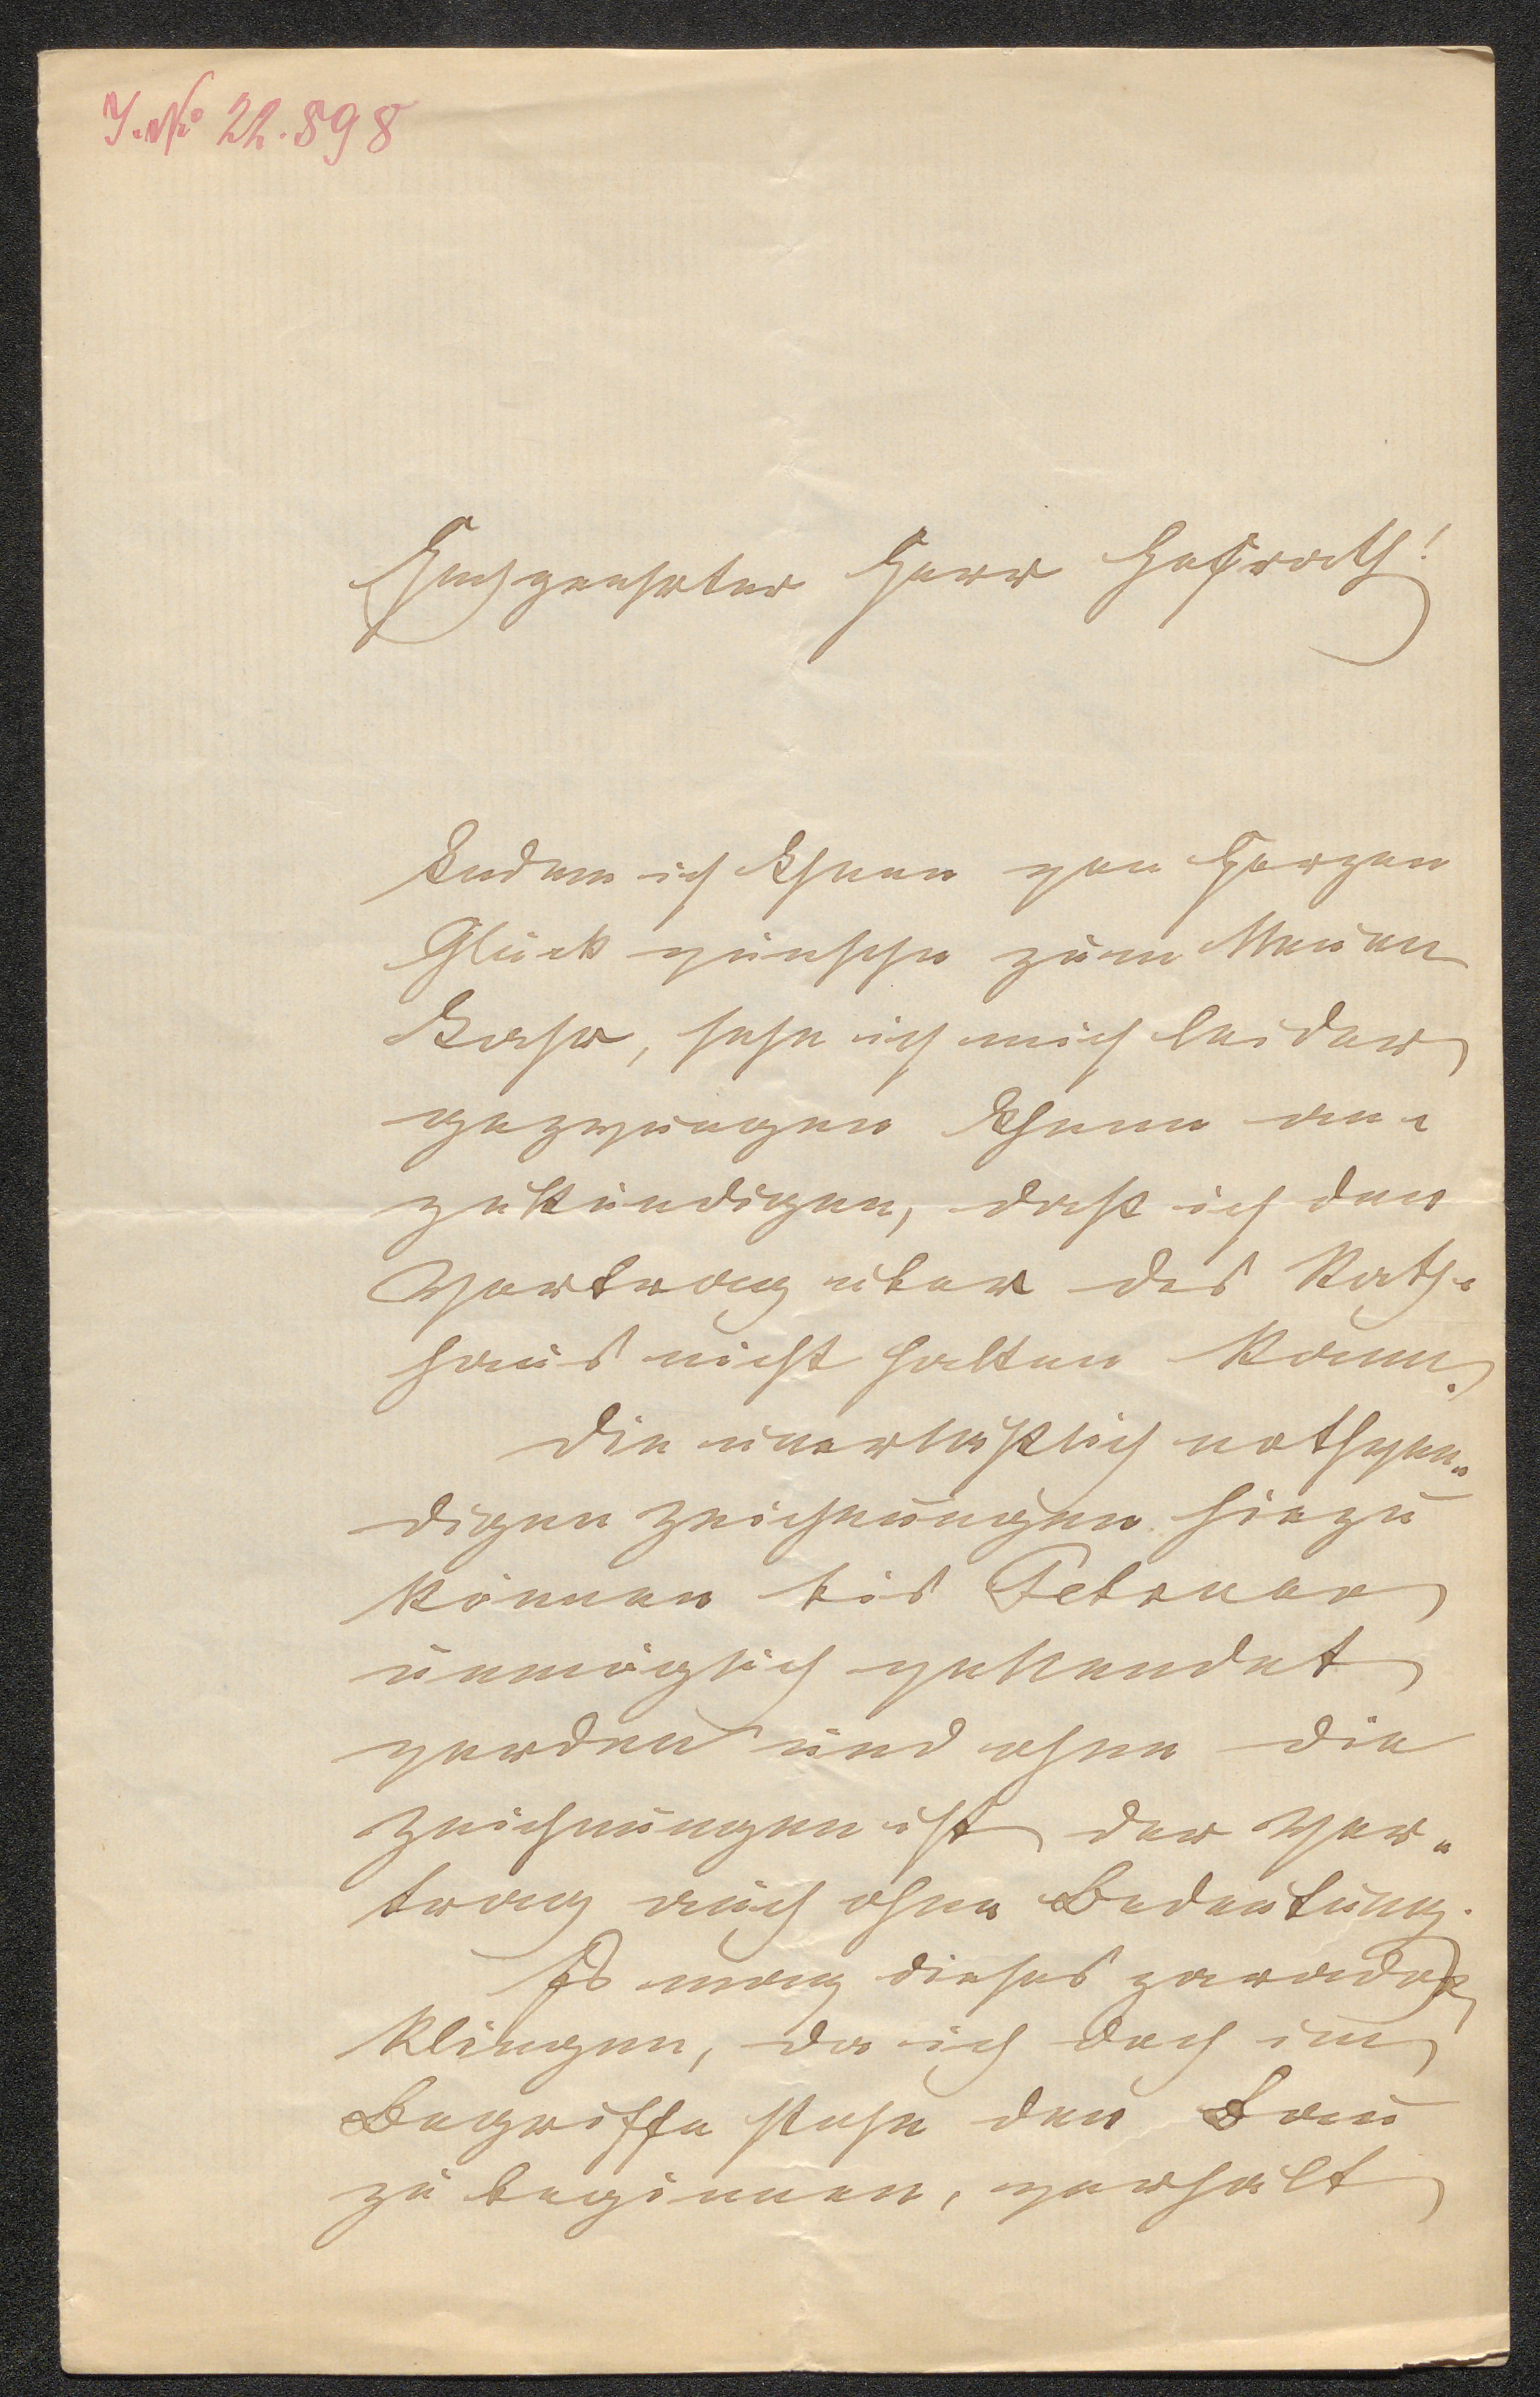 J. No 22.898
Hochgeehrter Herr Hofrath!
Indem ich Ihnen von Herzen
Glück wünsche zum Neuen
Jahr, sehe ich mich leider
gezwungen Ihnen an-
zukündigen, daß ich den
Vortrag über das Rath-
haus nicht halten kann.
Die unerläßlich nothwen-
digen Zeichnungen hiezu
können bis Februar
unmöglich vollendet
werden und ohne die
Zeichnungen ist der Vor-
trag auch ohne Bedeutung.
Es mag dieses paradox
klingen, da ich doch im
Begriffe stehe den Bau
zu beginnen, verhält